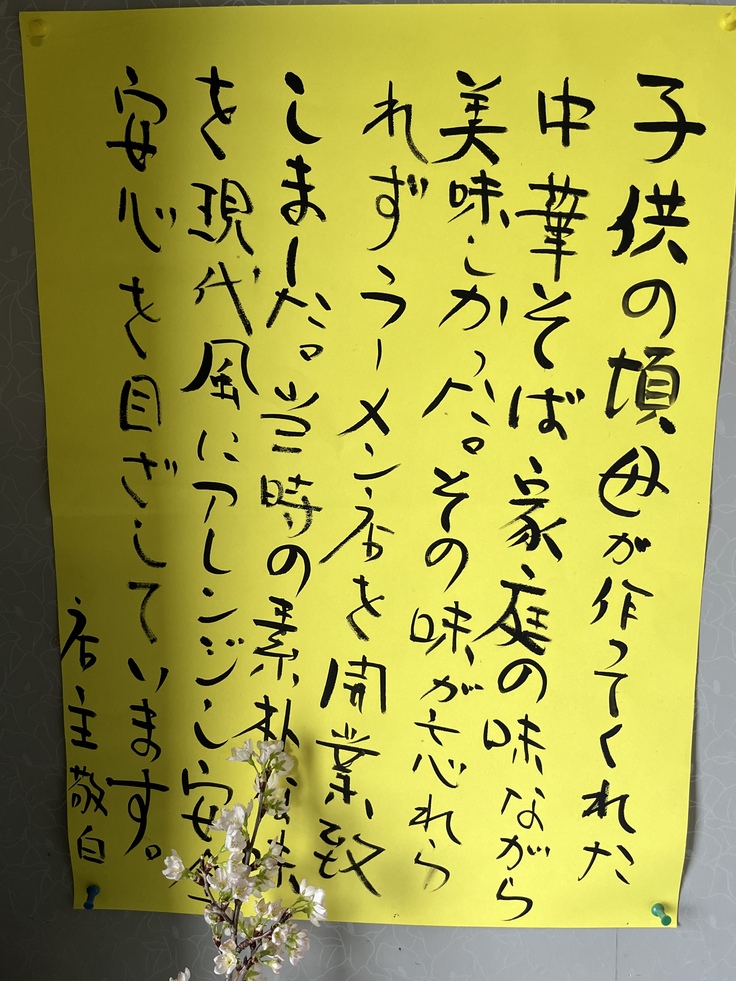 子供の頃母が作ってくれた
中華そば家庭の味ながら
美味しかった。その味が忘れら
れずラーメン店を開業致
しました。当時の素朴な味
を現代風にアレンジし安全
安心を目ざしています。
店主敬白